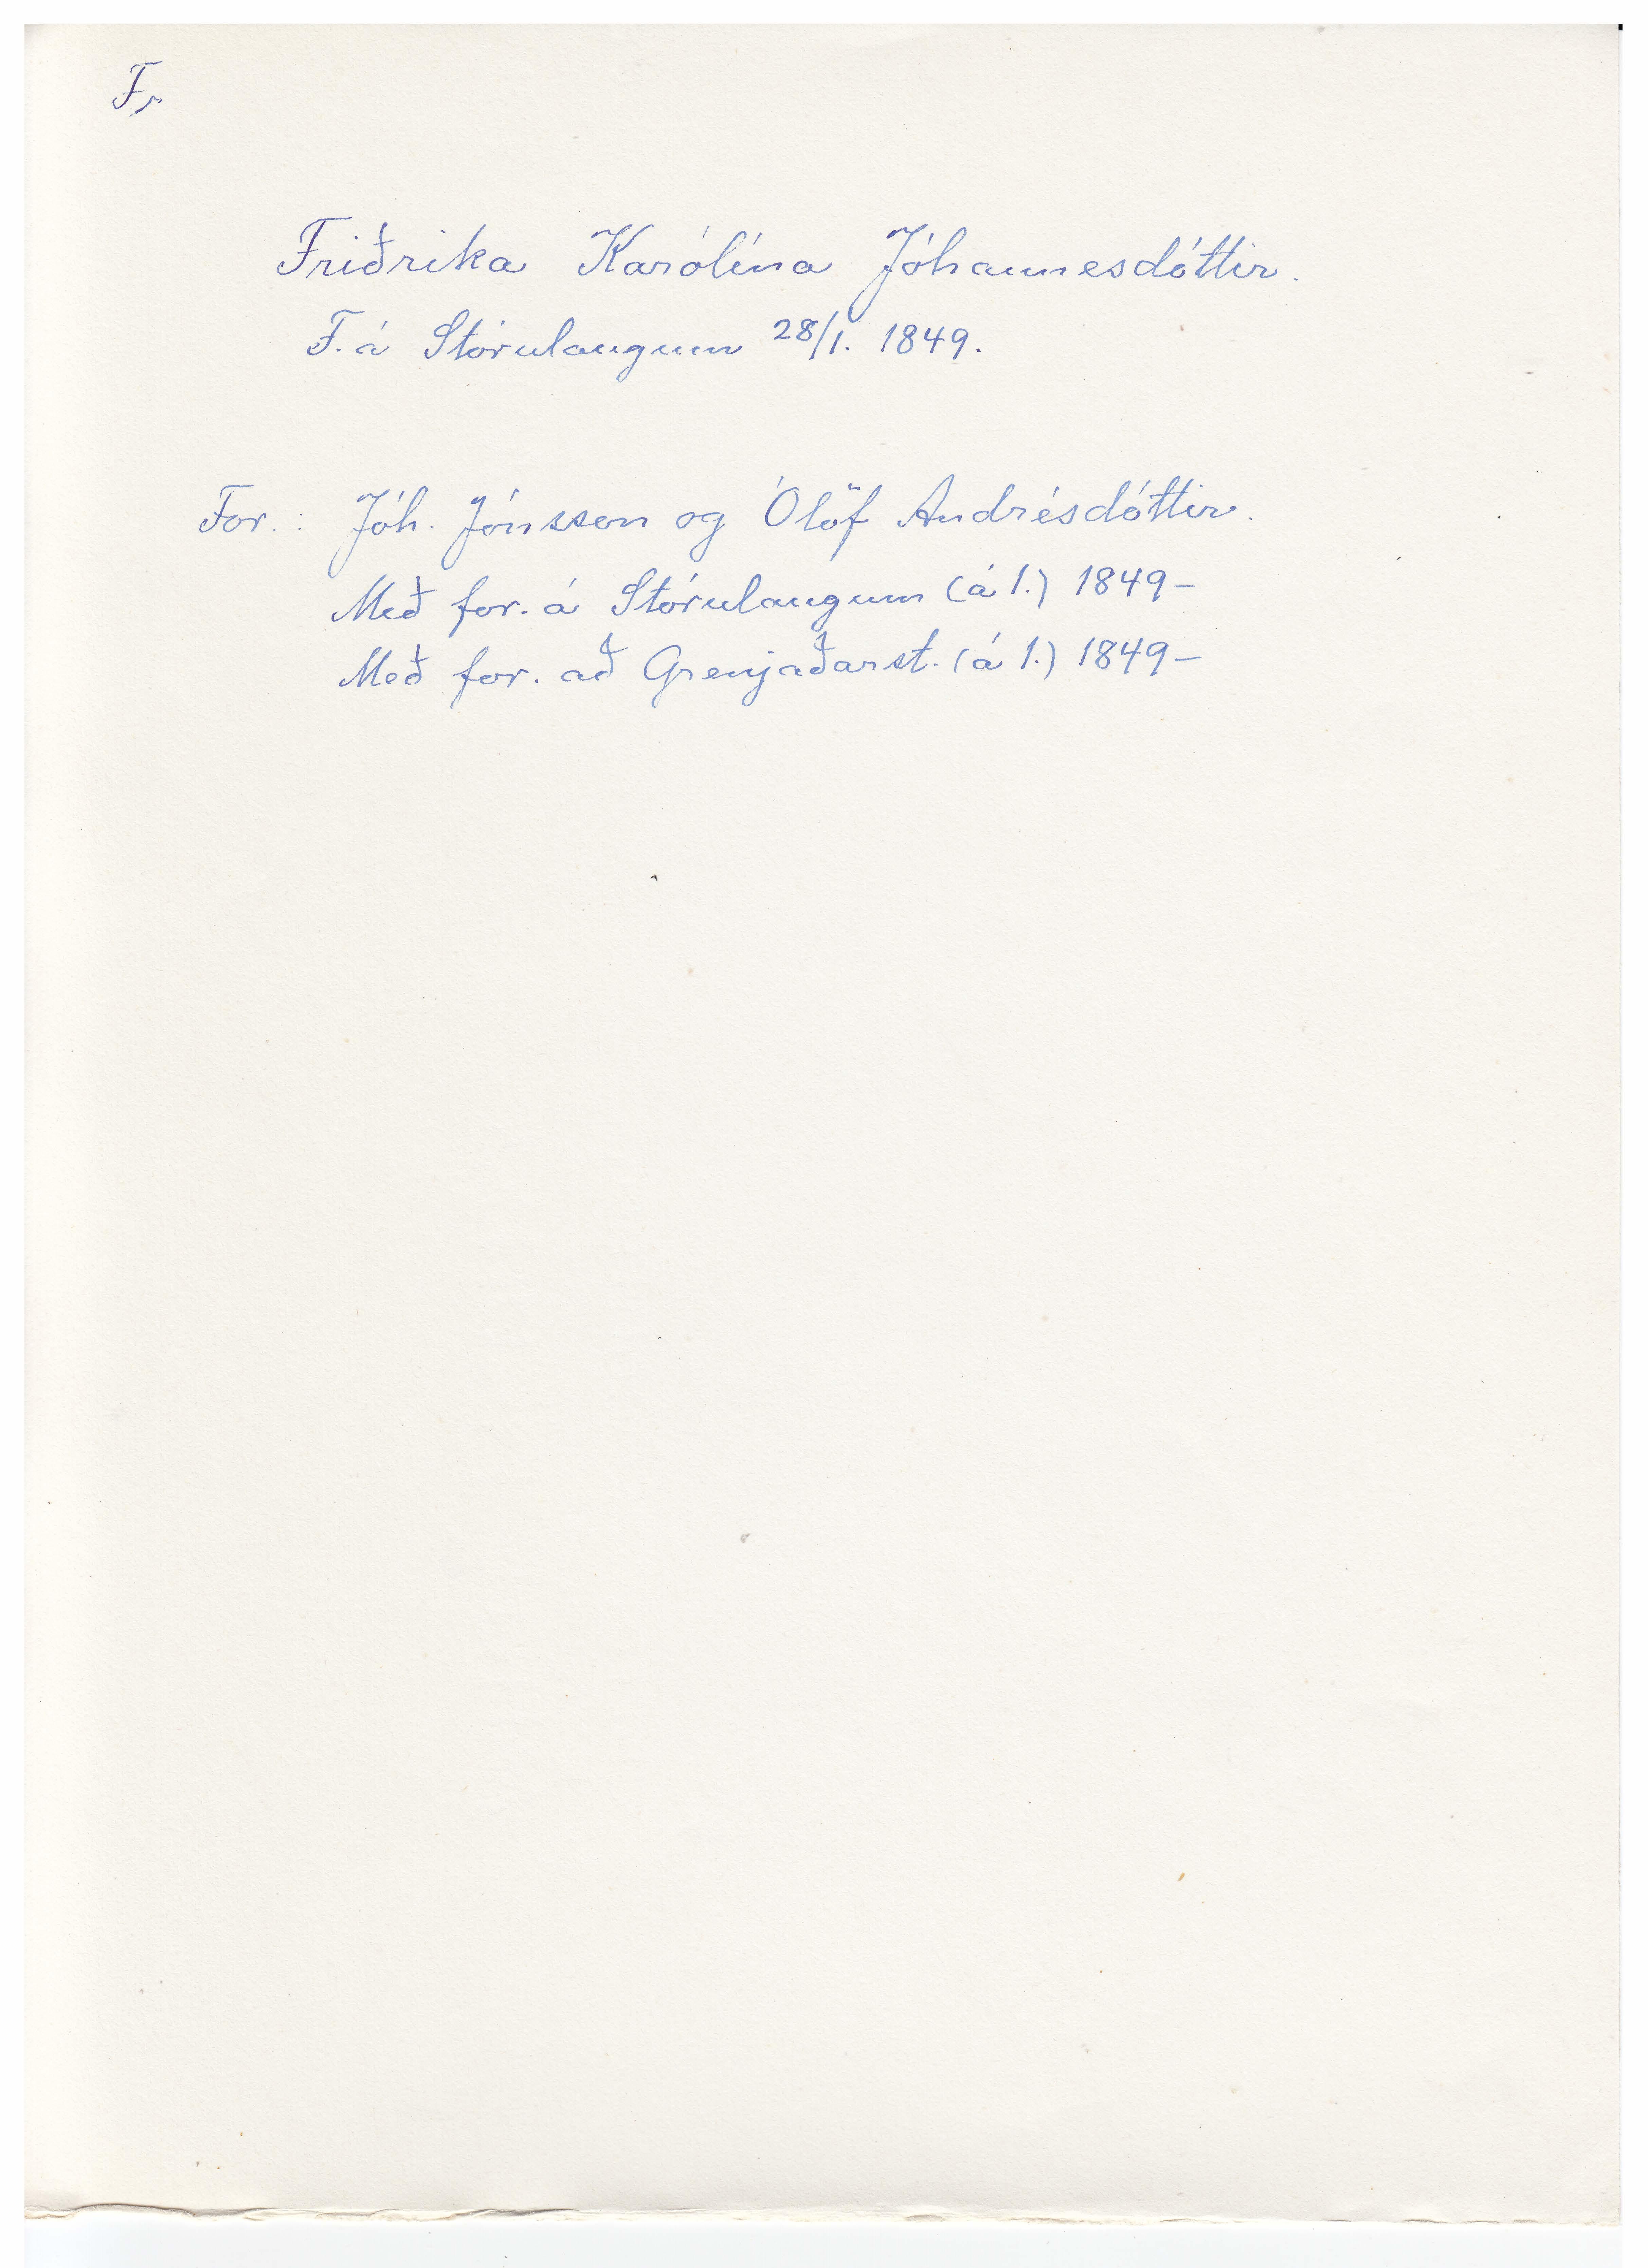 Fr
Friðrika Karólína Jóhannesdóttir.
F. á Stórulaugum 28/1. 1849.
For.: Jóh. Jónsson og Ólöf Andrésdóttir.
Með for. á Stórulaugum (á 1.) 1849–
Með for. að Grenjaðarst. (á 1.) 1849–